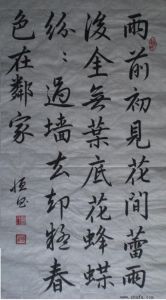 雨前初見花間蕊雨
後全無葉底花蜂蝶
紛〻過墙去却疑春
色在鄰家